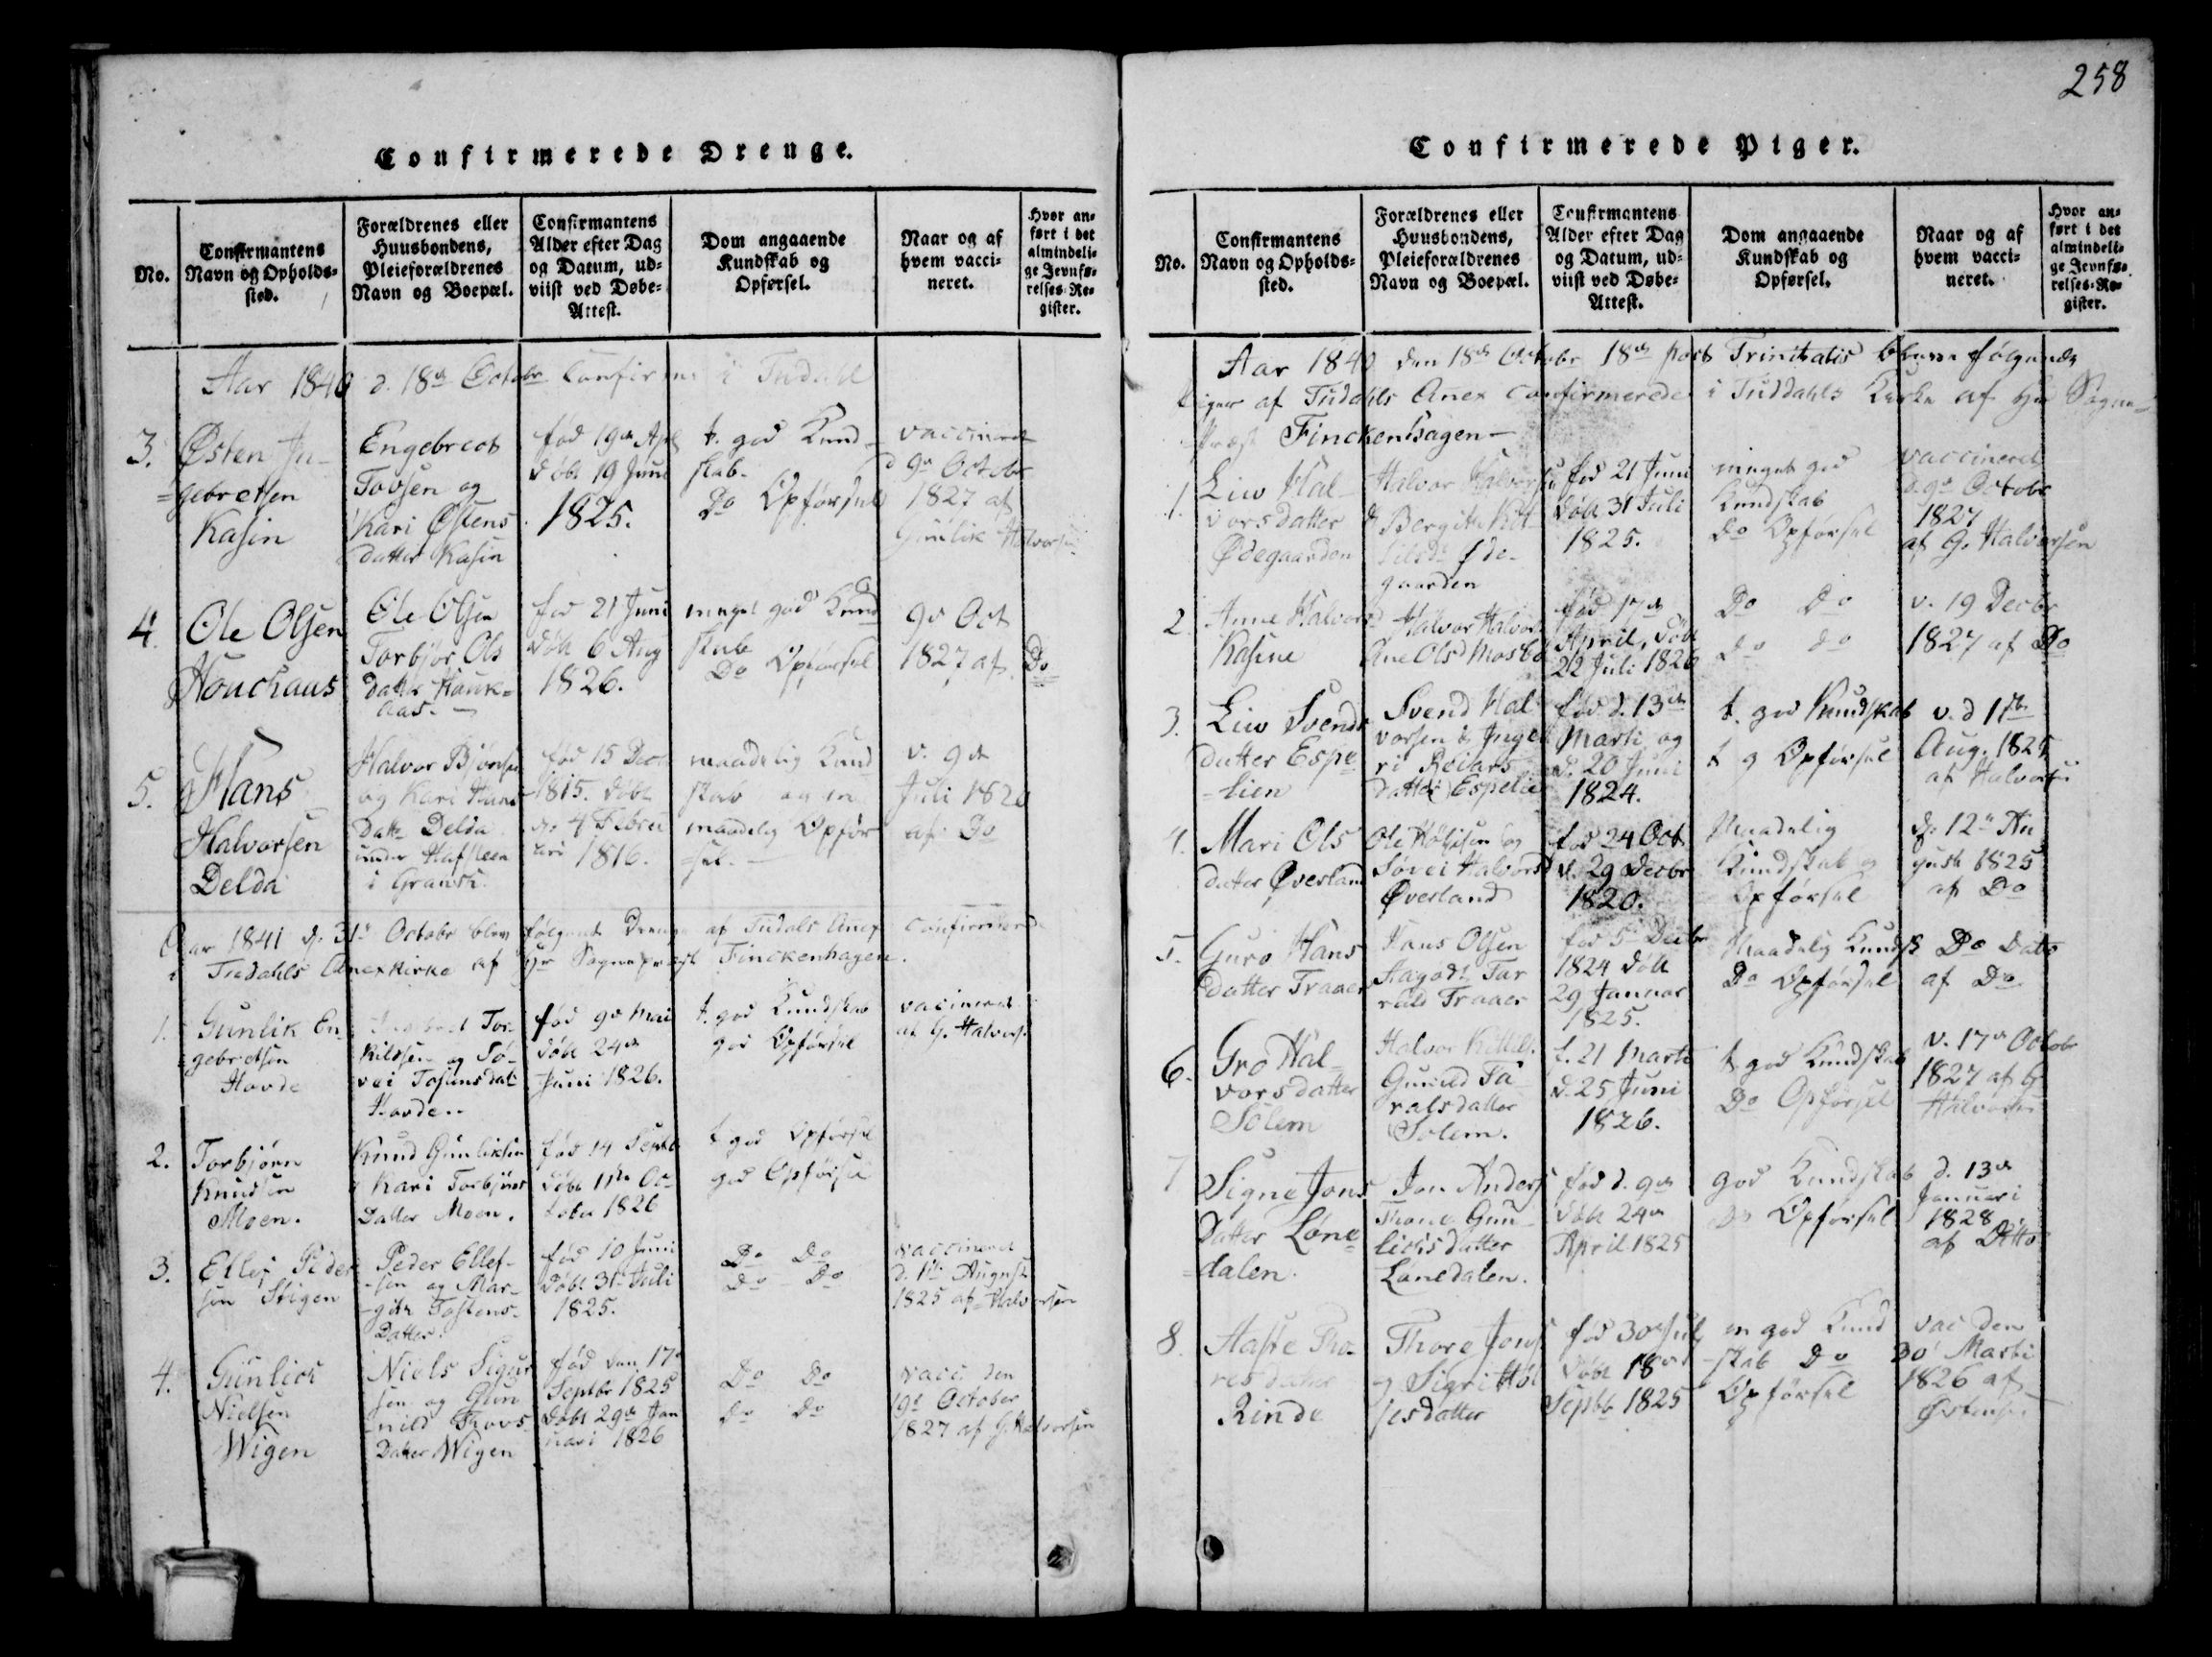 258
Confirmerede Drenge.
No.
Confirmantens
Navn og Opholds-
sted.
Forældrenes eller
Huusbondens,
Pleieforældrenes
Navn og Boepæl.
Confirmantens
Alder efter Dag
og Datum, ud-
viist ved Døbe-
Attest.
Dom angaaende
Kundskab og
Opførsel.
Naar og af
hvem vacci-
neret.
Hvor an-
ført i det
almindeli-
ge Jevnfø-
relses-Re-
gister.
Aar 1840 d. 18de Octobr i Tudall
3.
Østen
gebretsen
Kasin
Engebrect
Tovsen og
Kari Østens
datter Kasin
fød 19de Apl
døbt 19 Juni
1825.
t. god Kund-
skab.
Do Opførsel
vaccineret
d 9de Octobr
1827 af
Gunlik Halvorsen
4.
Ole Olsen
Houchaus
Ole Olsen
Torbjør Ols
datter Hauk-
aas.
fød 21 Juni
døbt 6 Aug
1826.
meget god Kund
skab
Do Opførsel
9de Oct
1827 af Do
5.
Hans
Halvorsen
Delda
Halvor Bjørnsen
og Kari Hans
datr Delda
under Hafsteen
i Gransh.
fød 15 Decbr
1815. døbt
d. 4 Febru
ari 1816.
maadelig Kund
skab og en
maadelig Opfør
sel.
v. 9de
Juli 1820
af Do
Aar 1841 d. 31te Octobr blev følgende Drenge af Tudals Anex confirmered
i Tudahls Anexkirke af Hr Sognepræst Finckenhagen.
1.
Gunlik En-
gebretsen
Hovde
Tor-
kildsen og Sø-
vei Tosensdatr
Hovde.
fød 9de Mai
døbt 24de
Juni 1826.
t. god Kundskab
god Opførsel
vacineret
af G. Halvors.
2.
Torbjørn
Knudsen
Moen.
Knud Gunliksen
Kari Torbjørns
Datter Moen.
fød 14 Septbr
døbt 11te Oc-
tober 1826
t god Opførsel
god Opførsel
3.
Ellef Peder
sen Stigen
Peder Ellef-
sen og Mar-
gith Tostens-
Datter.
fød 10 Juni
døbt 31te Juli
1825.
Do Do
Do Do
vaccineret
d. 11te August
1825 af Halvorsen
4.
Gunlick
Nielsen
Wigen
Niels Sigur
sen og Gun
nild Tiovs
Datter Wigen
fød den 17de
Septbr 1825
døbt 29de Jan
uari 1826
Do Do
Do Do
vacc. den
19de October
1827 af G. Halvorsen
Confirmerede Piger.
No.
Confirmantens
Navn og Opholds-
sted.
Forældrenes eller
Huusbondens,
Pleieforældrenes
Navn og Boepæl.
Confirmantens
Alder efter Dag
og Datum, ud-
viist ved Døbe-
Attest.
Dom angaaende
Kundskab og
Opførsel.
Naar og af
hvem vacci-
neret.
Hvor an-
ført i det
almindeli-
ge Jevnfø-
relses-Re-
gister.
Aar 1840 den 18de Octobr 18de post Trinitatis bleve følgende
Piger af Tudahls Anex confirmerede i Tuddahls Kirke af Hr Sogne-
Præst Finckenhagen
1.
Liw Hal-
vorsdatter
Ødegaarden
Halvor Halvorsen
& Bergith Kit-
tilsdr Øde-
gaarden
fød 21 Juni
døbt 31 Juli
1825.
meget god
Kundskab
Do Opførsel
vaccineret
d. 9de Octobr
1827
af G. Halvorsen
2.
Anne Halvorsd
Kasine
Halvor Halvors
Ane Olsd Mosbø
fød 17de
April, døbt
22 Juli 1826
Do Do
Do Do
v. 19 Decbr
1827 af Do
3.
Liw Svends
datter Espe-
lien
Svend Hal
vorsen & Inge
ri Reiars
datter Espelie
fød d. 13de
Marti og
d. 20 Juni
1824.
t. god Kundskab
t g Opførsel
v. d 11te
Aug. 1825
af Halvorsen
4.
Mari Ols
datter Øverland
Ole Høljesen og
Søvei Halvorsd
Øverland
fød 24 Oct
d. 29 Decbr
1820.
Maadelig
Kundskab og
Opførsel
d. 12te Au
gust 1825
af Do
5.
Guro Hans
datter Traaer
Hans Olsen
Aagodt Tar
Traaer
fød 5te Decbr
1824 døbt
29 Januar
1825.
Maadelig Kundsk
Do Opførsel
Do Dato
af Do
6.
Gro Hal-
vorsdatter
Solem
Halvor Kittels
Gunild Ta-
ralsdatter
Solem.
f. 21 Marti
d. 25 Juni
1826.
t god Kundskab
Do Opførsel
v. 17de Octobr
1827 af G
Halvorsen
7
Signe Jons
Datter Løne-
dalen.
Jon Anders
Thone Gun-
licksdatter
Lønedalen.
fød d. 9de
døbt 24de
April 1825
god Kundskab
Do Opførsel
d. 13de
Januari
1828
af Ditto
8.
Aaste Tho-
resdatter
Rinde
Thore Jons
og Sigri Høl
jesdatter
fød 30de July
døbt 18de
Septbr 1825
m god Kund
skab Do
Opførsel
vac den
30te Marti
1826 af
Østensen